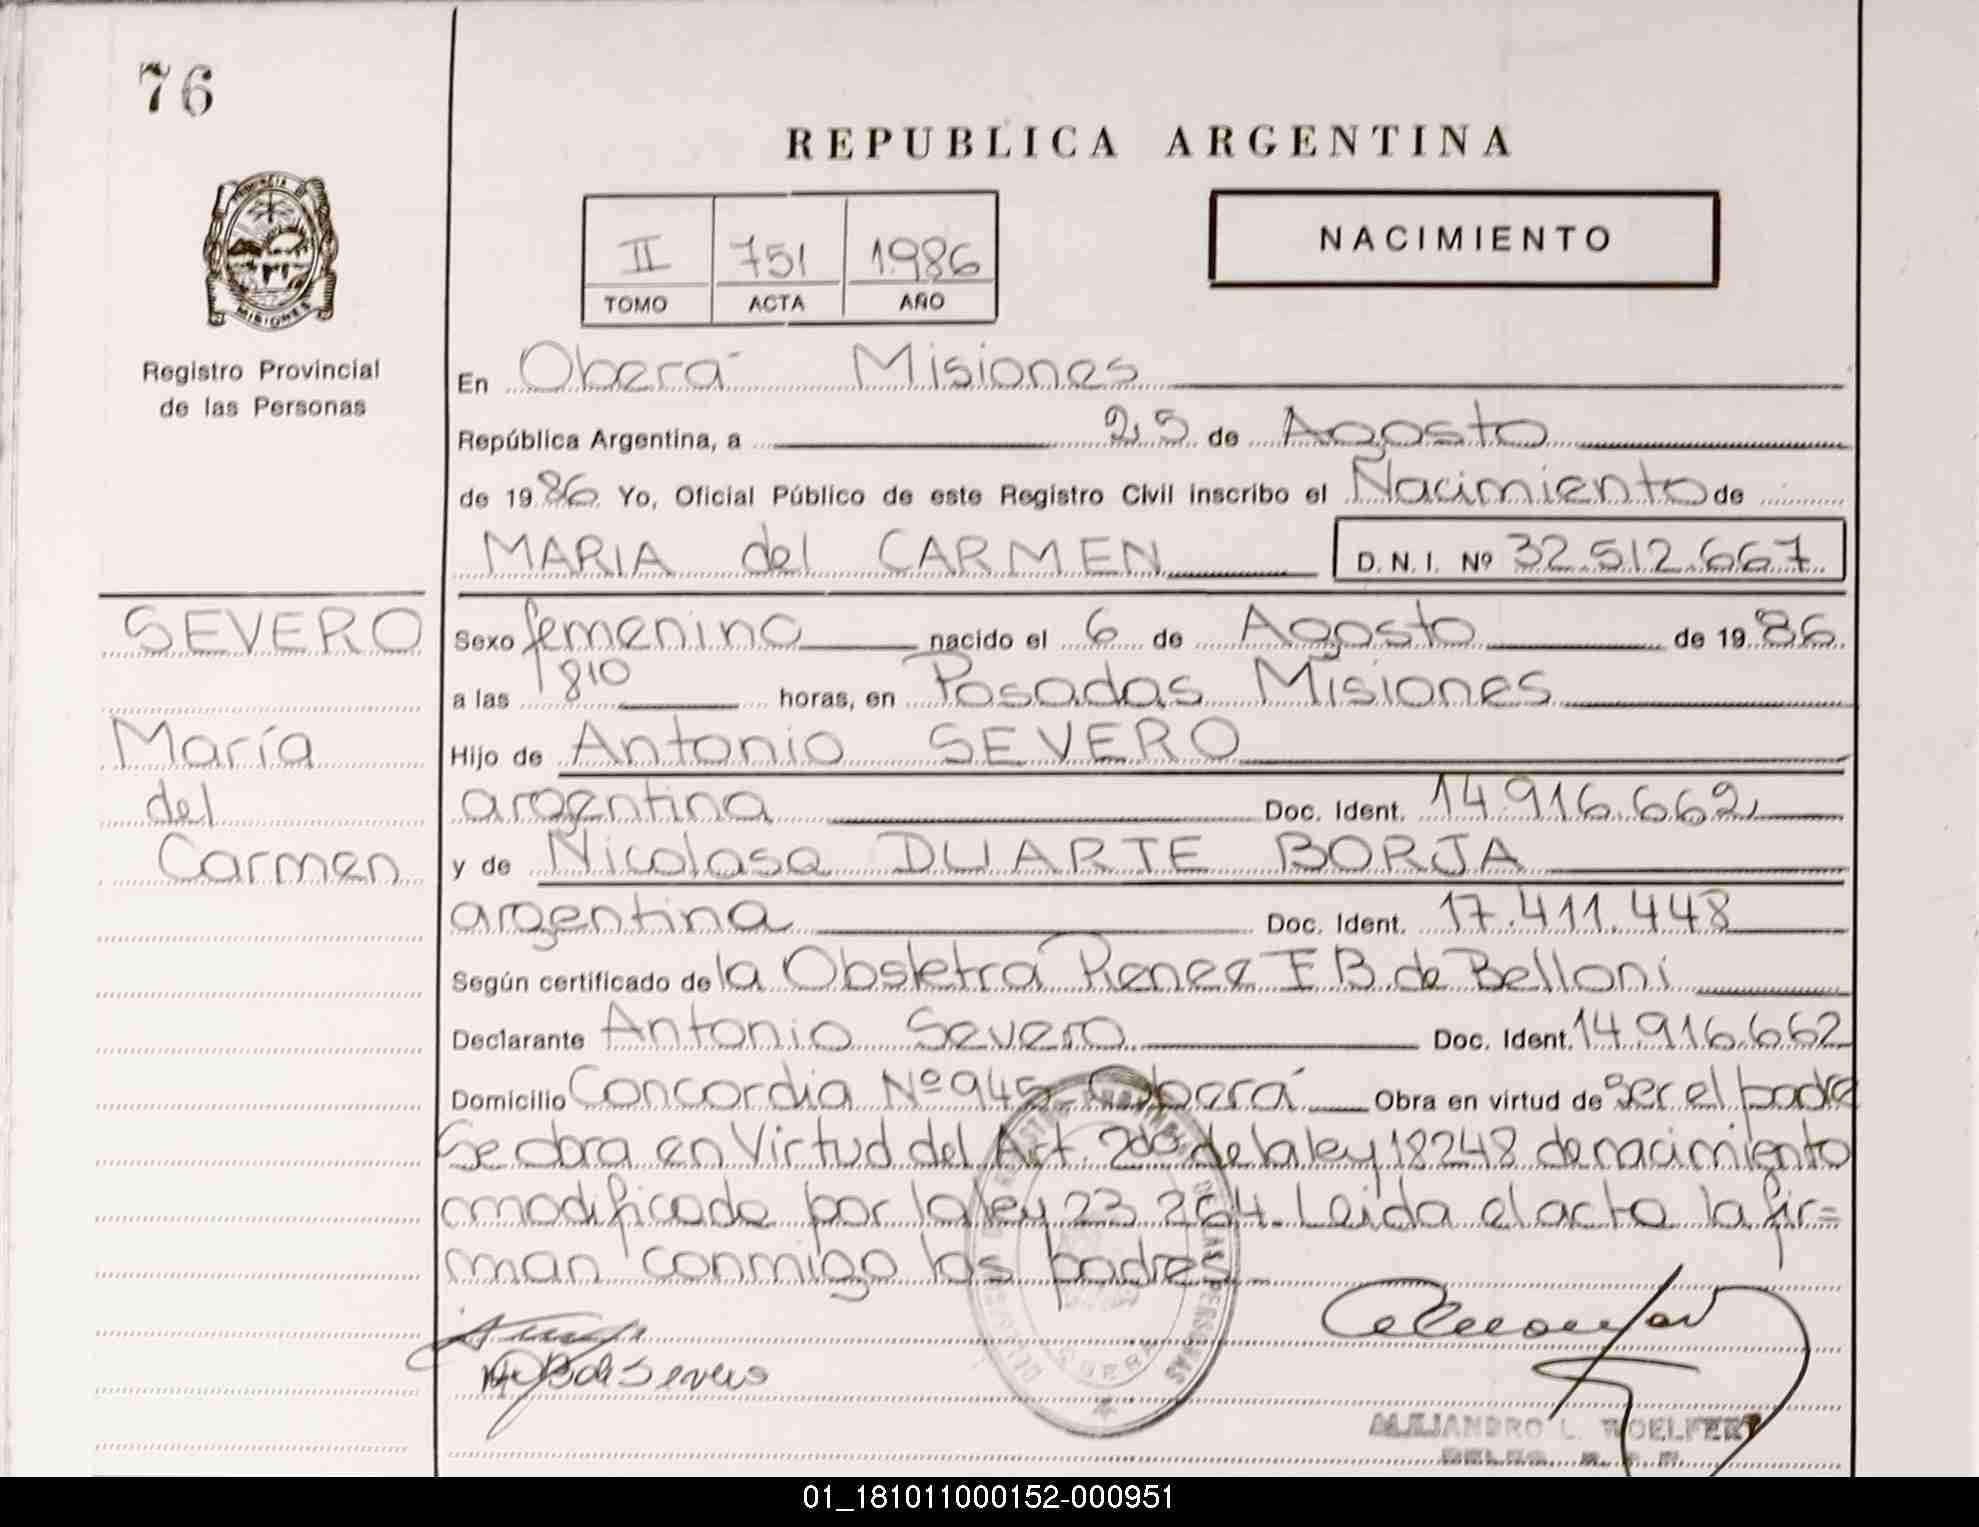 76
REPUBLICA ARGENTINA
PROVINCIA D
MISIONES
Registro Provincial
de las Personas
II 751 1986
TOMO ACTA AÑO
NACIMIENTO
En Oberá Misiones
República Argentina, a 25 de Agosto
de 1986 Yo, Oficial Público de este Registro Civil inscribo el Nacimiento de
MARIA del CARMEN D.N.I. Nº 32.512.667
SEVERO
María
del
Carmen
Sexo femenino nacido el 6 de Agosto de 1986
a las 1810 horas, en Posadas Misiones
Hijo de Antonio SEVERO
argentina Doc. Ident. 14.916.662
y de Nicolasa DUARTE BORJA
argentina Doc. Ident. 17.411.448
Según certificado de la Obstetra Renee E B. de Belloni
Declarante Antonio Severo Doc. Ident. 14.916.662
Domicilio Concordia Nº 945 - Oberá Obra en virtud de ser el padre
Se obra en Virtud del Art. 2do de la ley 18248 de nacimiento
modificada por la ley 23.264. Leida el acta la fir=
man conmigo los padres
de Severo
ALEJANDRO L. WOELFERT
01_181011000152-000951